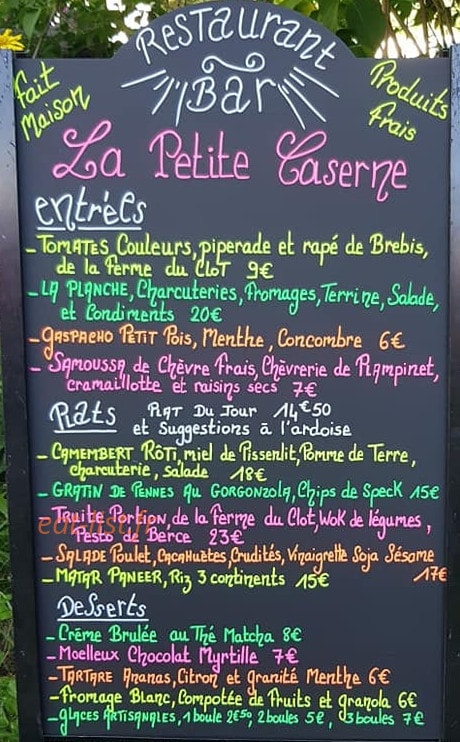 Restaurant
Bar
Fait
Maison
Produits
Frais
La Petite Caserne
entrées
- Tomates Couleurs, piperade et rapé de Brebis,
de la Ferme du Clot 9€
- LA PLANCHE, Charcuteries, Fromages, Terrine, Salade,
et Condiments 20€
- GASPACHO PETIT Pois, Menthe, Concombre 6€
- SAMOUSSA de Chèvre Frais, Chèvrerie de Plampinet,
cramaillotte et raisins secs 7€
Plats PLAT DU JOUR 14€50
et Suggestions à l'ardoise
- CAMEMBERT RÔTI, miel de Pissenlit, Pomme de Terre,
charcuterie, salade 18€
- GRATIN DE PENNES AU GORGONZOLA, Chips de Speck 15€
- Truite Portion, de la Ferme du Clot, Wok de légumes,
Pesto d/ Berce 23€
- SALADE Poulet, Cacahuètes, Crudités, Vinaigrette Soja Sésame
17€
- MATAR PANEER, Riz 3 continents 15€
Desserts
- Crème Brulée au Thé Matcha 8€
- Moelleux Chocolat Myrtille 7€
- TARTARE Ananas, Citron et granité Menthe 6€
- Fromage Blanc, Compotée de Fruits et granola 6€
- GLACES ARTISANALES, 1 boule 2€50, 2 boules 5€, 3 boules 7€